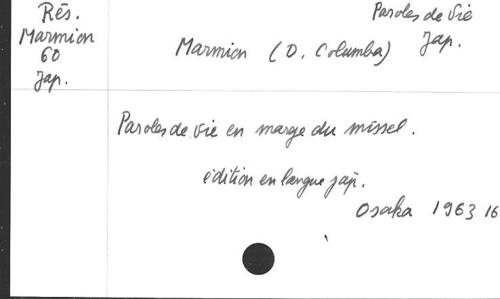 Rés.
Marmion
60
Jap.
Paroles de Vie
Jap.
Marmion (D. Columba)
Paroles de Vie en marge du missel.
édition en langue jap.
Osaka 1963 16